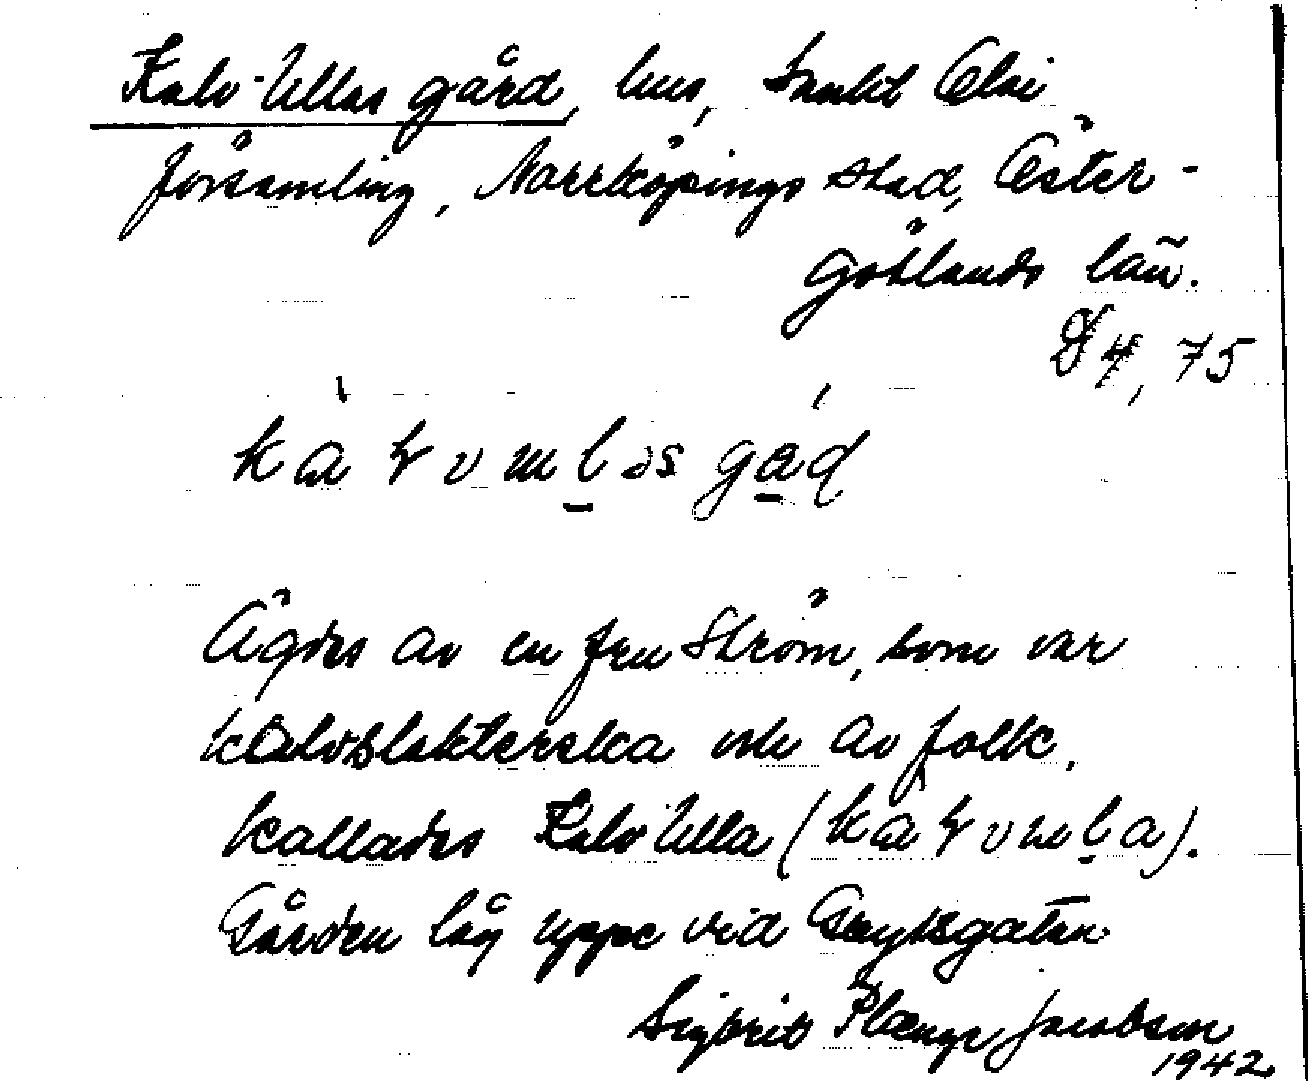 Kalv-Ullas gård, hus, Sankt Olai
församling, Norrköpings stad, Öster-
götlands län.
4, 75
Ägdes av en fru Ström, som var
kalvslakterska och av folk
kallades Kalv Ulla
Gården låg uppe vid
Sigbrit Plænge Jacobson
1942